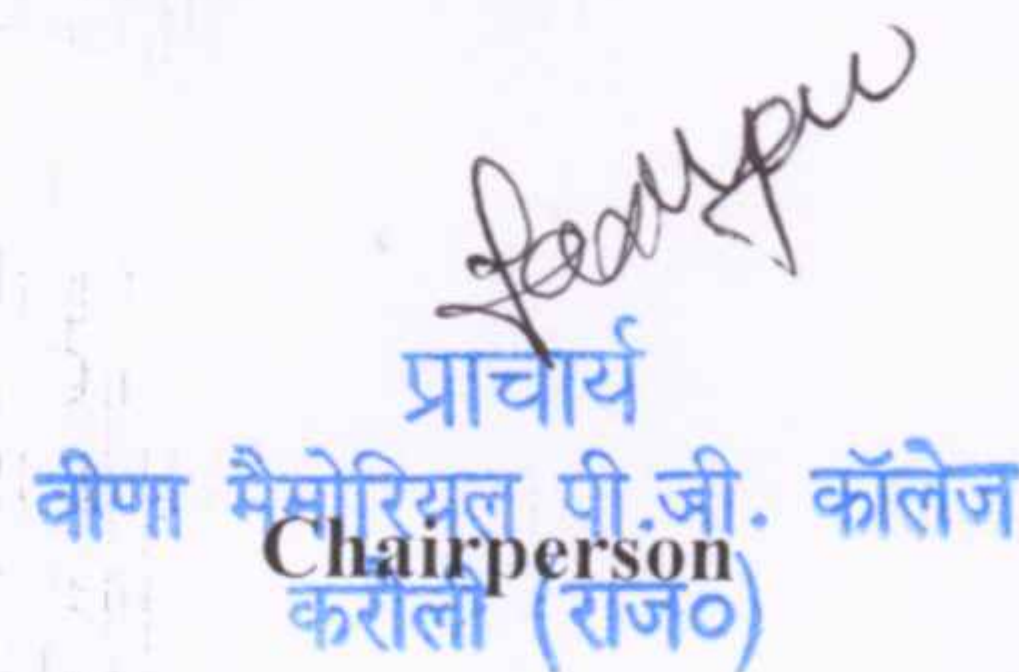 प्राचार्य
वीणा मैमोरियल पी.जी. कॉलेज
Chairperson
करौली (राज०)